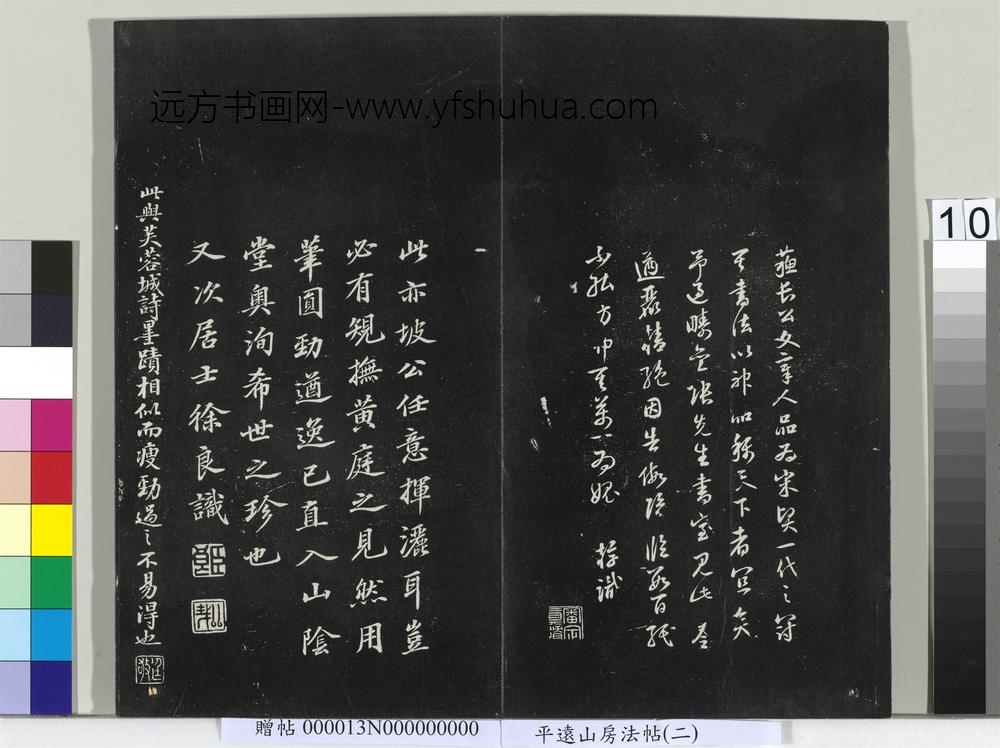 远方书画网-www.yfshuhua.com
蘇长公文章人品为宋贤一代之冠
其書法以神品称天下者宜矣
先生書室見此卷
遒麗情絶因告
不能方中其萬一为媿 識
此亦坡公任意揮灑耳豈
必有䂓撫黄庭之見然用
筆圓勁遒逸已直入山陰
堂奥洵希世之珍也
又次居士徐良識
此與芙蓉城詩墨蹟相似而瘦勁過之不易得也
10
贈帖 000013N000000000
平遠山房法帖(二)